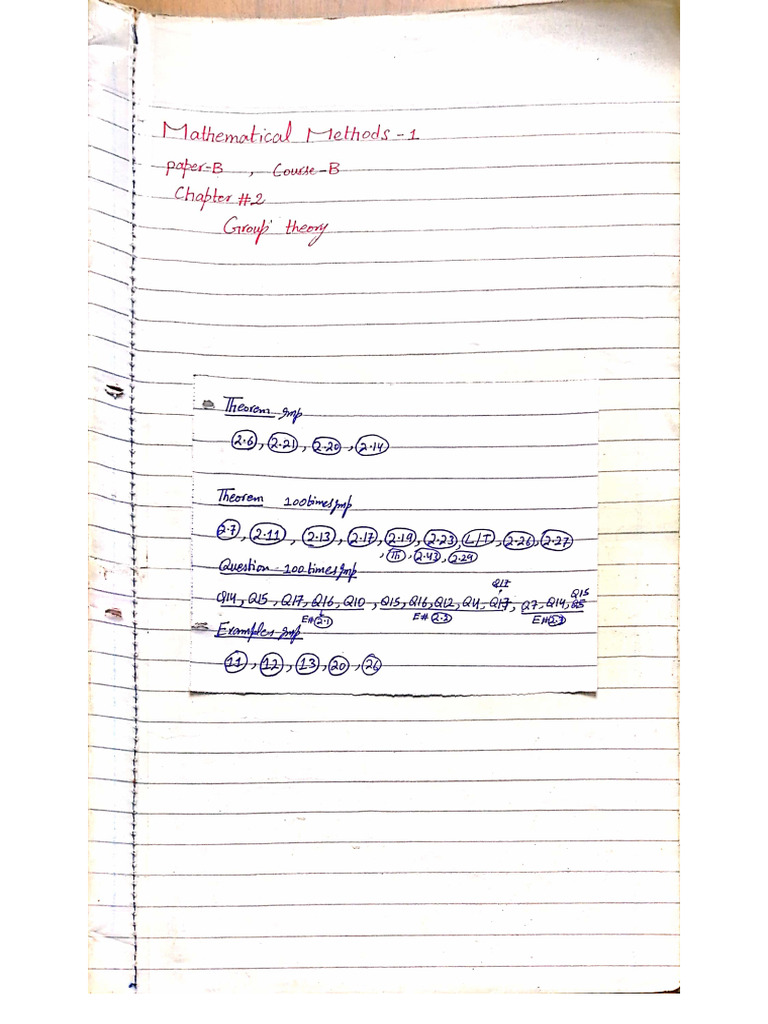 Mathematical Methods-1
paper-B , Course-B
Chapter #2
Group theory
Theorem Imp
2.6, 2.21, 2.20, 2.14
Theorem 100times Imp
2.7, 2.11, 2.13, 2.17, 2.19, 2.23, L/T, 2.26, 2.27
, 2.43, 2.29
Question 100times Imp
Q14, Q15, Q17, Q16, Q10, Q15, Q16, Q12, Q11, Q17, Q7, Q14, Q15
E#2.1 E#2.3 E#2.3
Examples Imp
11, 12, 13, 20, 26